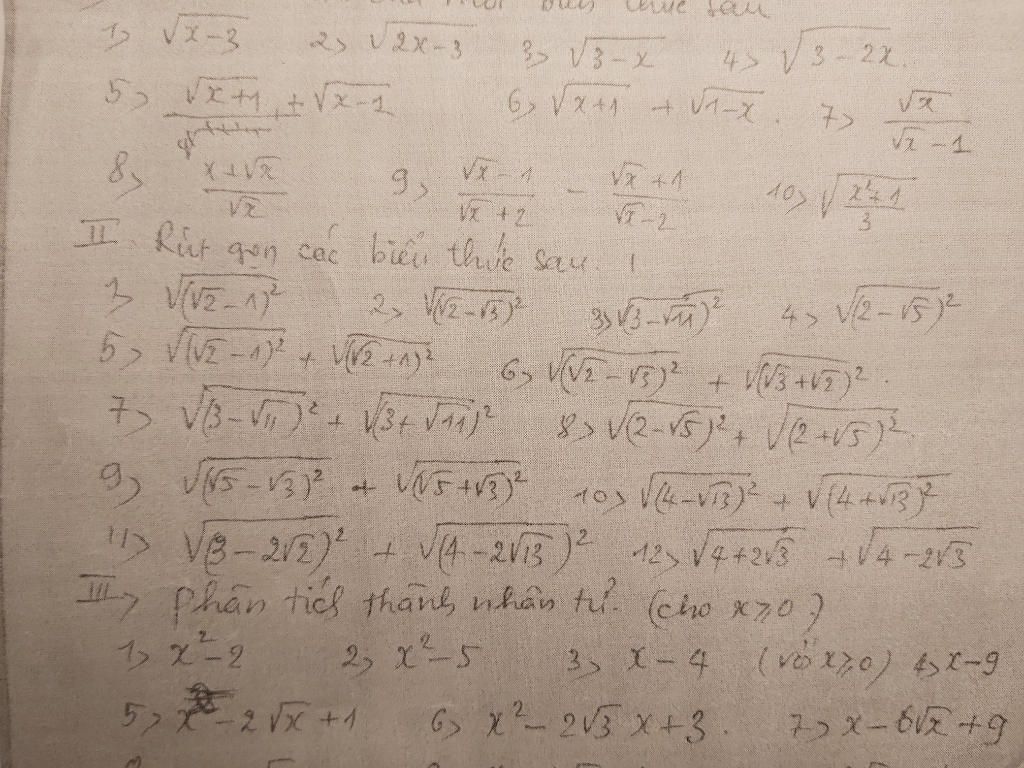 biểu thức sau
1> √(x-3) 2> √(2x-3) 3> √(3-x) 4> √(3-2x).
5> √(x+1) + √(x-1) 6> √(x+1) + √(1-x). 7> √x/(√x-1)
8> (x+√x)/√x 9> (√x-1)/(√x+2) - (√x+1)/(√x-2) 10> √((x²+1)/3)
II Rút gọn các biểu thức sau.
1> √((√2-1)²) 2> √((√2-√3)²) 3> √((3-√11)²) 4> √((2-√5)²)
5> √((√2-1)²) + √((√2+1)²) 6> √((√2-√3)²) + √((√3+√2)²).
7> √((3-√11)²) + √((3+√11)²) 8> √((2-√5)²) + √((2+√5)²)
9> √((√5-√3)²) + √((√5+√3)²) 10> √((4-√13)²) + √((4+√13)²)
11> √((3-2√2)²) + √((4-2√13)²) 12> √(4+2√3) + √(4-2√3)
III> Phân tích thành nhân tử. (cho x≥0)
1> x²-2 2> x²-5 3> x-4 (với x≥0) 4> x-9
5> x-2√x+1 6> x²-2√3x+3. 7> x-6√x+9